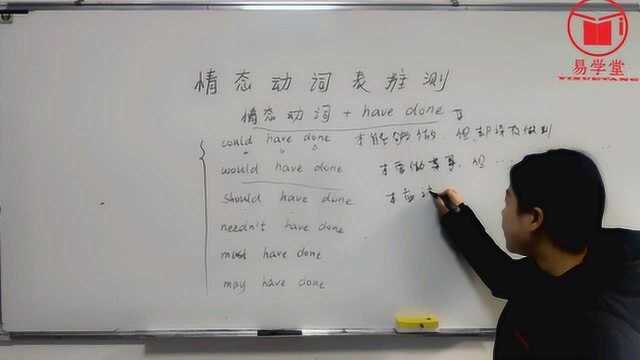 易学堂
YIXUETANG
情态动词表推测
情态动词 + have done
could have done 本能够做,但却没有做到
would have done 本会做某事,但…
should have done 本应该
needn't have done
must have done
may have done